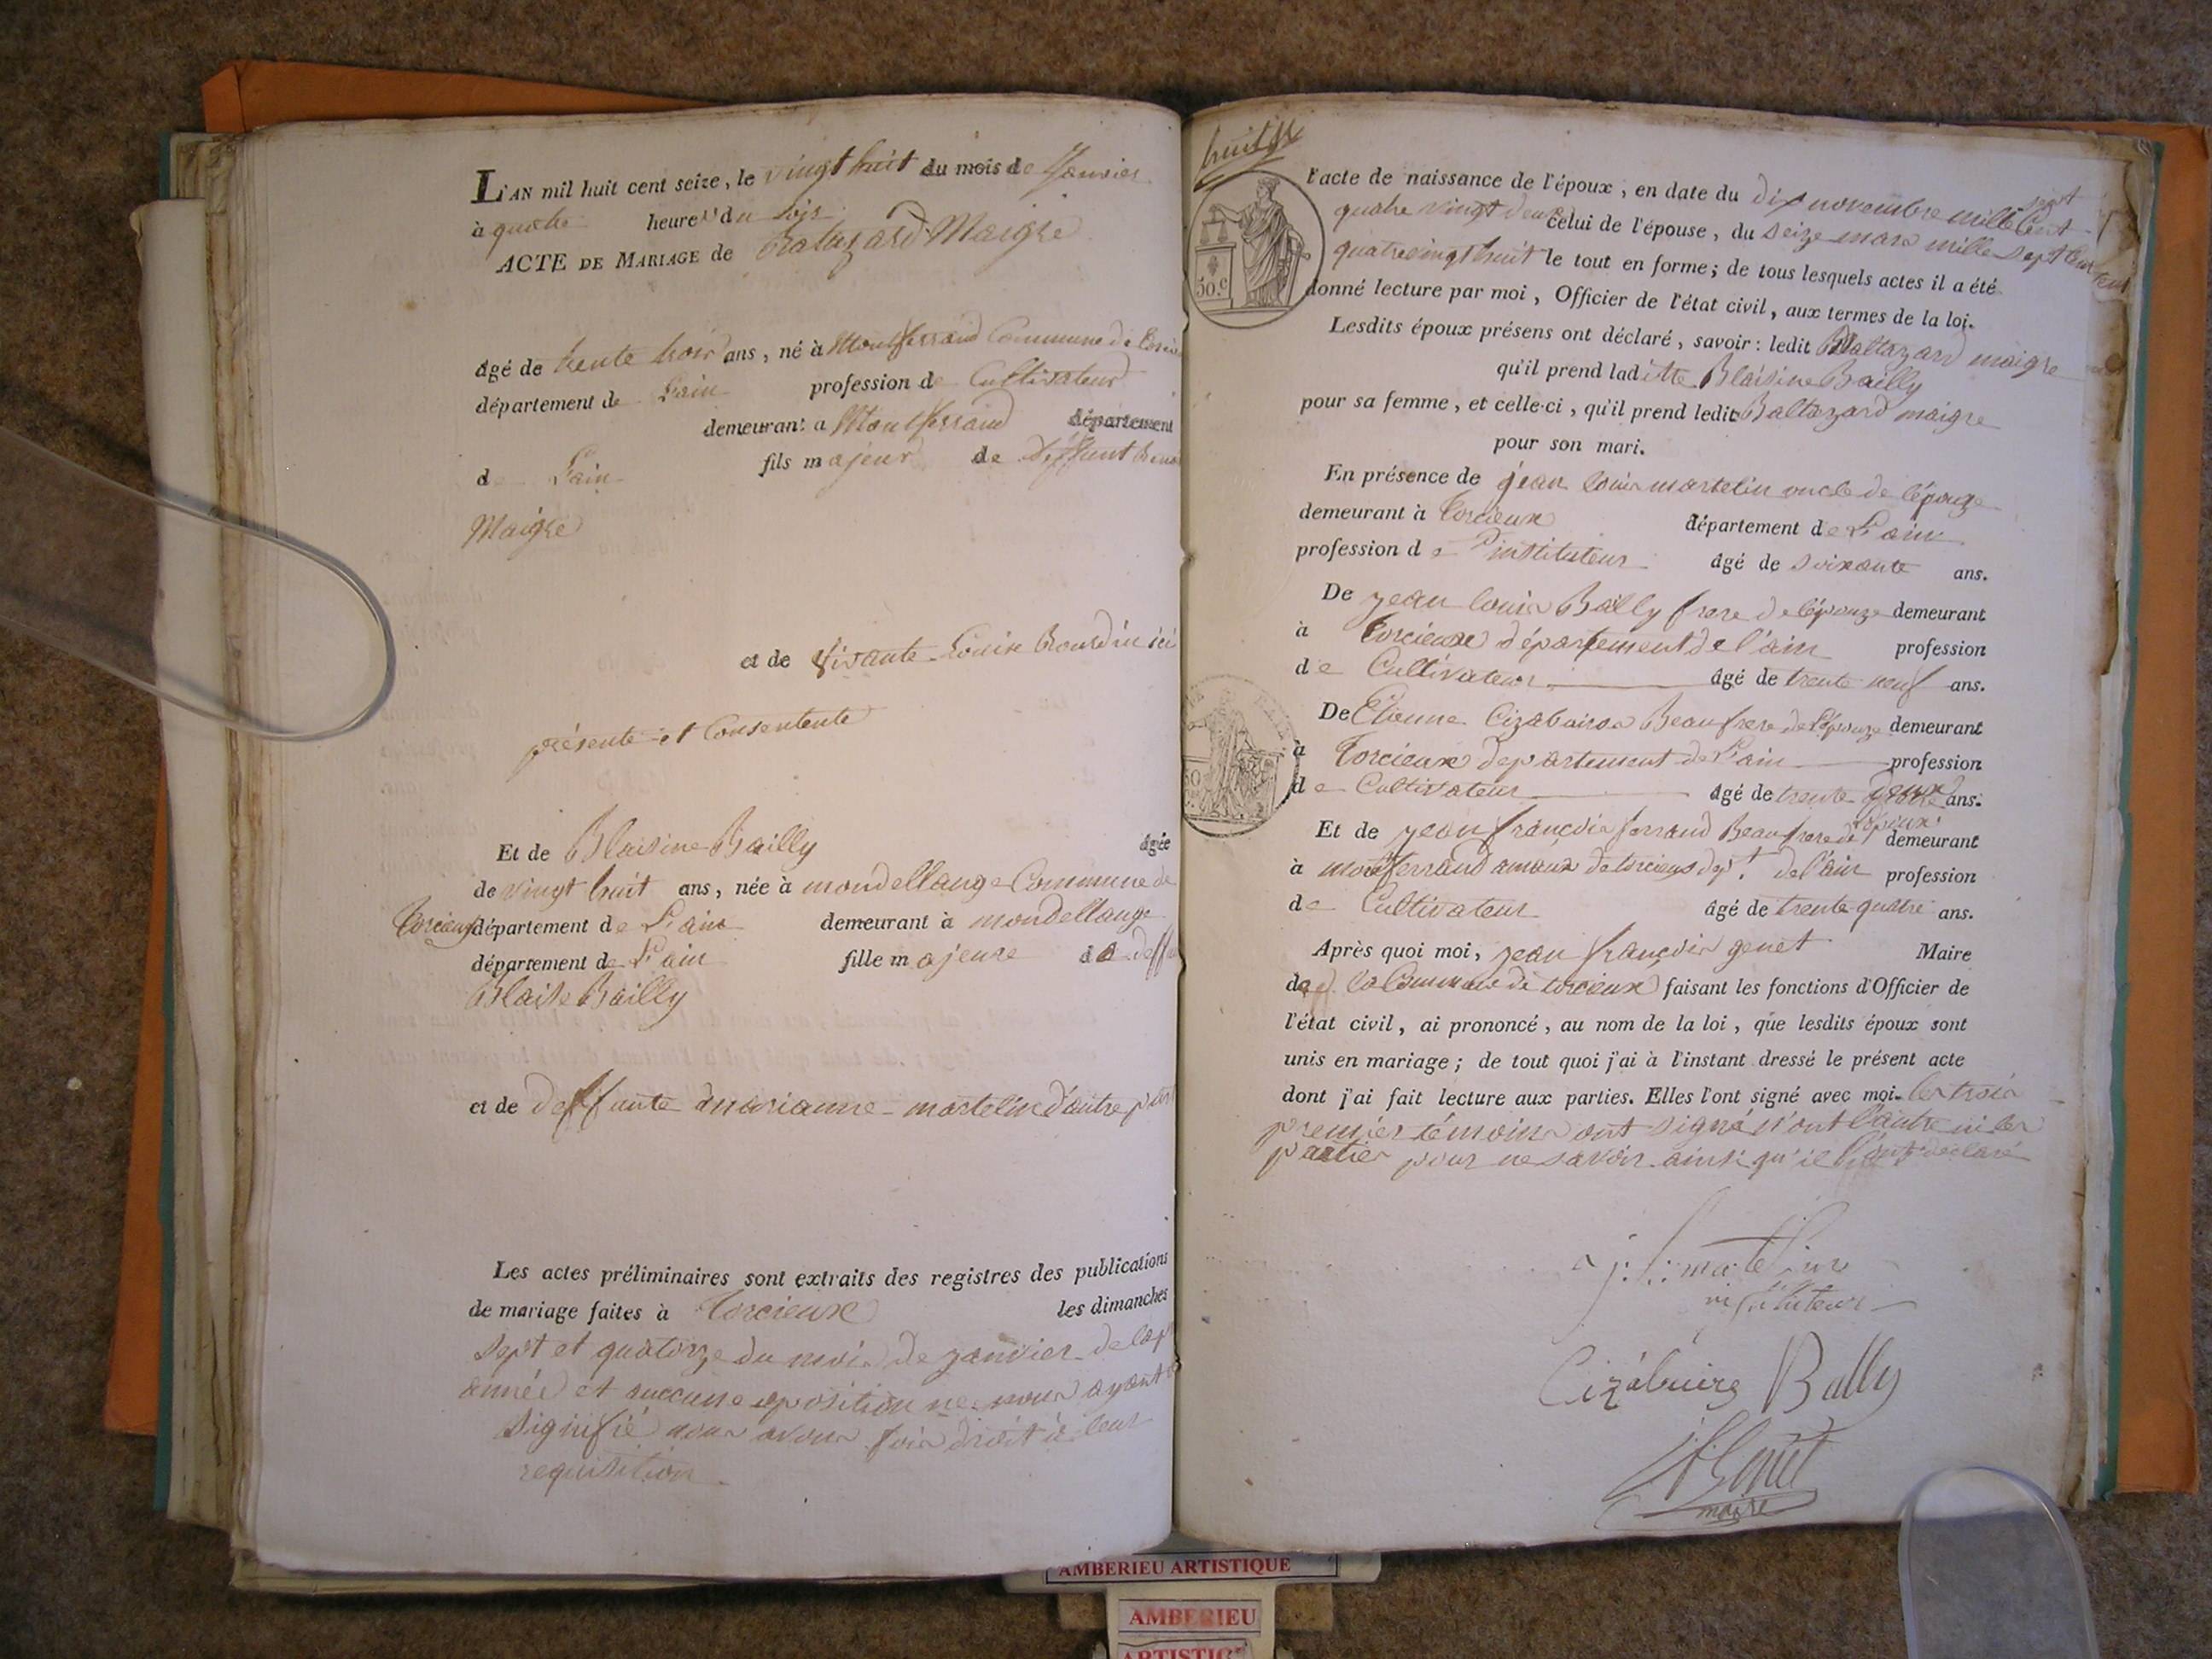 L'AN mil huit cent seize, le vingt huit du mois de Janvier
à quatre heures du soir
ACTE DE MARIAGE de Baltazard Maigre
âgé de trente trois ans, né à Montferrand Commune de
département de L'ain profession de Cultivateur
demeurant a Montferrand département
de L'ain fils majeur de deffunt
Maigre
et de vivante Louise Bourdin ici
présente et Consentente
Et de Blaisine Bailly âgée
de vingt huit ans, née à mondellange Commune de
Torcieux département de L'ain demeurant à mondellange
département de L'ain fille majeure de deff
Blaise Bailly
et de deffunte marianne martelin d'autre part
Les actes préliminaires sont extraits des registres des publications
de mariage faites à Torcieux les dimanches
sept et quatorze du mois de janvier de la p
année et auccune oposition ne nous ayant
signifié nous avons fais droit à leur
requisition
huit
50.c
l'acte de naissance de l'époux, en date du dix novembre mille sept Cent
quatre vingt deux celui de l'épouse, du seize mars mille sept Cent
quatrevingt huit le tout en forme; de tous lesquels actes il a été
donné lecture par moi, Officier de l'état civil, aux termes de la loi.
Lesdits époux présens ont déclaré, savoir: ledit Baltazard maigre
qu'il prend laditte Blaisine Bailly
pour sa femme, et celle-ci, qu'il prend ledit Baltazard maigre
pour son mari.
En présence de jean Louis martelin oncle de l'épouze
demeurant à Torcieux département de L'ain
profession d'instituteur âgé de soixante ans.
De jean louis Bailly frere de l'épouze demeurant
à Torcieux département de l'ain profession
de Cultivateur âgé de trente neuf ans.
De Etienne Cizabuiros Beaufrere de L'épouze demeurant
à Torcieux departement de L'ain profession
de Cultivateur âgé de trente deux ans.
Et de jean françois ferrand Beaufrere de l'époux demeurant
à montferrand amaux de torcieux dept. de l'ain profession
de Cultivateur âgé de trente quatre ans.
Après quoi moi, jean françois genet Maire
de la Commune de torcieux faisant les fonctions d'Officier de
l'état civil, ai prononcé, au nom de la loi, que lesdits époux sont
unis en mariage; de tout quoi j'ai à l'instant dressé le présent acte
dont j'ai fait lecture aux parties. Elles l'ont signé avec moi. les trois
premier témoins ont signé n'ont l'autre ni les
parties pour ne savoir ainsi qu'il l'ont déclaré
j. l. martelin
instituteur
Cizabuirs Bally
Genet
maire
AMBERIEU ARTISTIQUE
AMBERIEU
ARTISTIQ